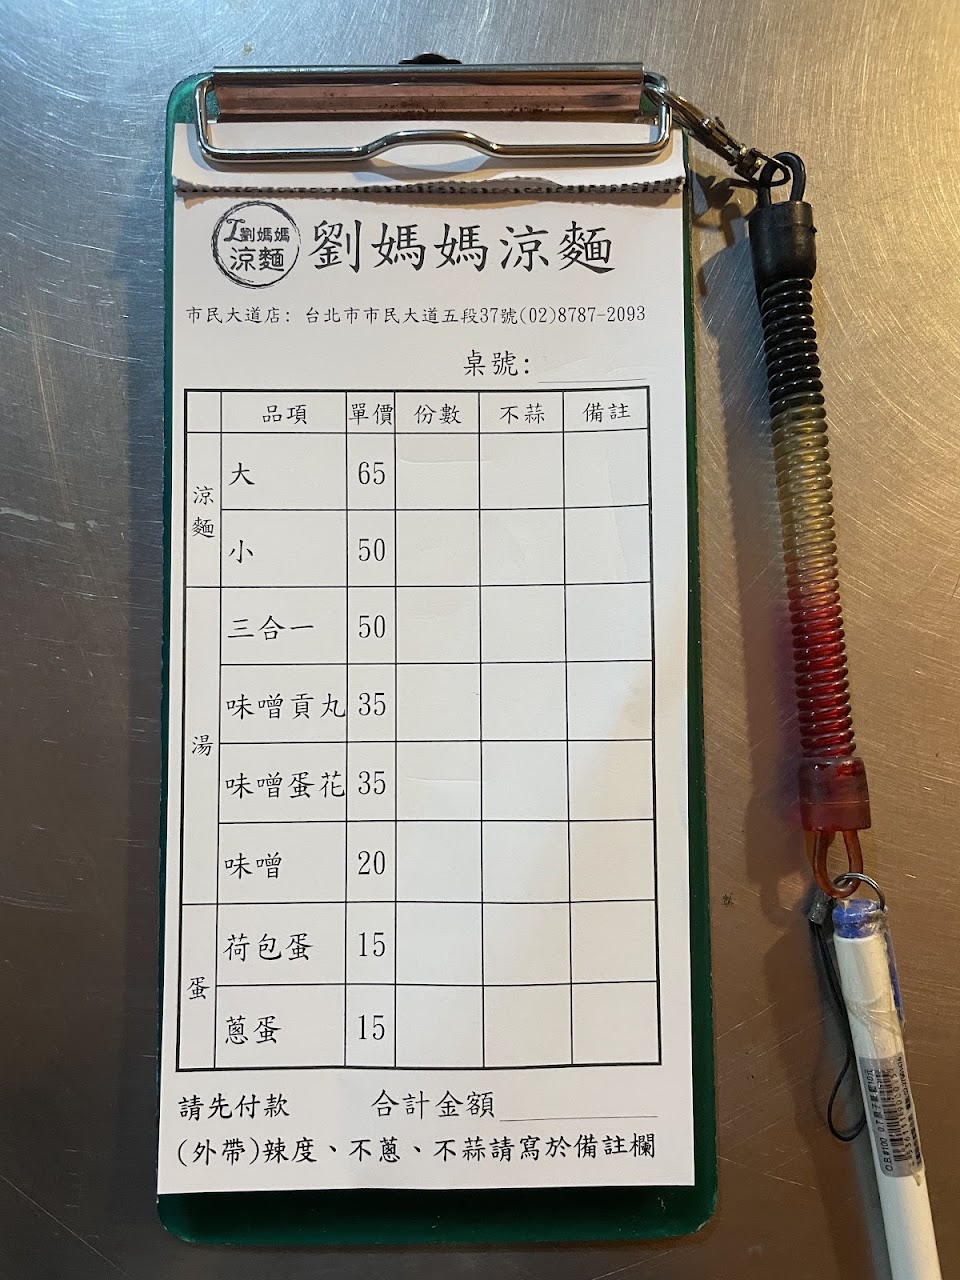 劉媽媽
涼麵
劉媽媽涼麵
市民大道店: 台北市市民大道五段37號(02)8787-2093
桌號:
品項 單價 份數 不蒜 備註
涼麵
大 65
小 50
湯
三合一 50
味噌貢丸 35
味噌蛋花 35
味噌 20
蛋
荷包蛋 15
蔥蛋 15
請先付款 合計金額
(外帶)辣度、不蔥、不蒜請寫於備註欄